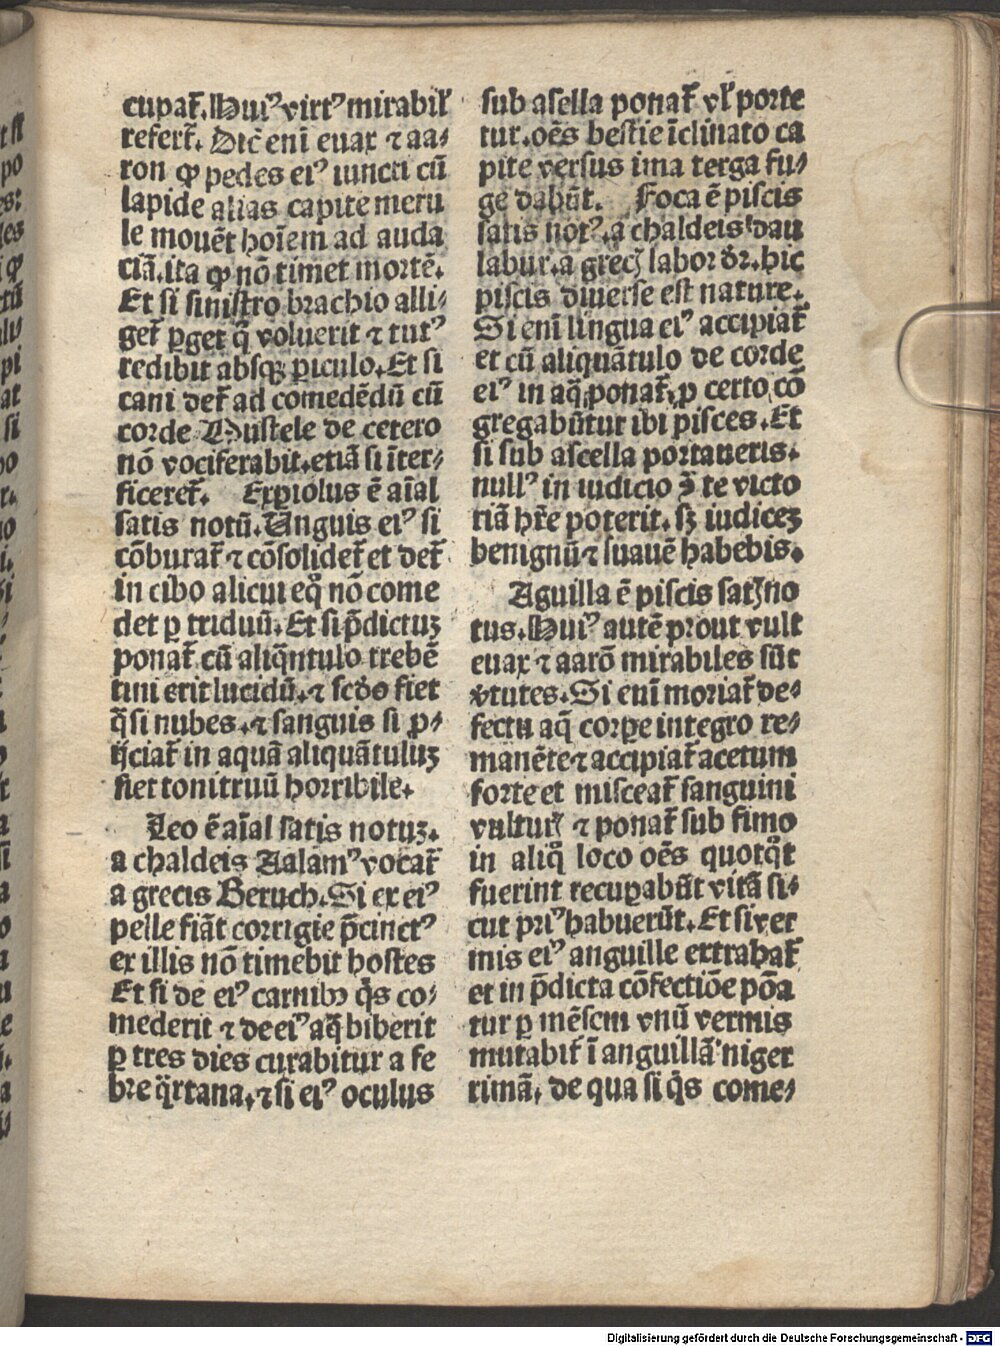 cupat᷑. Huiꝰ virtꝰ mirabil᷑
refert᷑. Dic̄ eni euax ⁊ aa⸗
ron ꝙ pedes eiꝰ iuncti cū
lapide alias capite meru
le mouēt hoīem ad auda
ciā. ita ꝙ nō timet mortē.
Et si sinistro brachio alli⸗
get᷑ ꝑget q̄ voluerit ⁊ tutꝰ
redibit absqꝫ ꝑiculo. Et si
cani det᷑ ad comedēdū cū
corde Mustele de cetero
nō vociferabit. etiā si īter⸗
ficeret᷑. Expiolus ē aīal
satis notū. Unguis eiꝰ si
cōburat᷑ ⁊ cōsolidet᷑ et det᷑
in cibo alicui eqͦ nō come
det ꝑ triduū. Et si p̄dictuꝫ
ponat᷑ cū aliq̄ntulo trebē
tini erit lucidū. ⁊ scdo fiet
q̄si nubes. ⁊ sanguis si ꝓ⸗
ijciat᷑ in aquā aliquātuluꝫ
fiet tonitruū horribile.
Leo ē aīal satis notuꝫ.
a chaldeis Aalamꝰ vocat᷑
a grecis Beruch. Si ex eiꝰ
pelle fiāt corrigie p̄cinctꝰ
ex illis nō timebit hostes
Et si de eiꝰ carnibꝰ q̄s co⸗
mederit ⁊ de eiꝰ aq̄ biberit
ꝑ tres dies curabitur a fe
bre q̄rtana. ⁊ si eiꝰ oculus
sub asella ponat᷑ vl᷑ porte
tur. oēs bestie īclinato ca
pite versus ima terga fu⸗
ge dabūt. Foca ē piscis
satis notꝰ. a chaldeis dau
labur. a grecꝭ labor dr̄. hic
piscis diuerse est nature.
Si eni lingua eiꝰ accipiat᷑
et cū aliquātulo de corde
eiꝰ in aq̄ ponat᷑, ꝓ certo cō
gregabūtur ibi pisces. Et
si sub ascella portaueris.
nullꝰ in iudicio ꝯ̄ te victo
riā hr̄e poterit. sꝫ iudiceꝫ
benignū ⁊ suauē habebis.
Aguilla ē piscis satꝭ no
tus. Huiꝰ autē prout vult
euax ⁊ aarō mirabiles sūt
v̄tutes. Si eni moriat᷑ de⸗
fectu aq̄ corꝑe integro re⸗
manēte ⁊ accipiat᷑ acetum
forte et misceat᷑ sanguini
vulturꝭ ⁊ ponat᷑ sub fimo
in aliqͦ loco oēs quotqͦt
fuerint recuꝑabūt vitā si⸗
cut priꝰ habuerūt. Et si ver
mis eiꝰ anguille extrahat᷑
et in p̄dicta cōfectiōe pōa
tur ꝑ mēsem vnū vermis
mutabit᷑ ī anguillā niger
rimā. de qua si q̄s come⸗
Digitalisierung gefördert durch die Deutsche Forschungsgemeinschaft - DFG